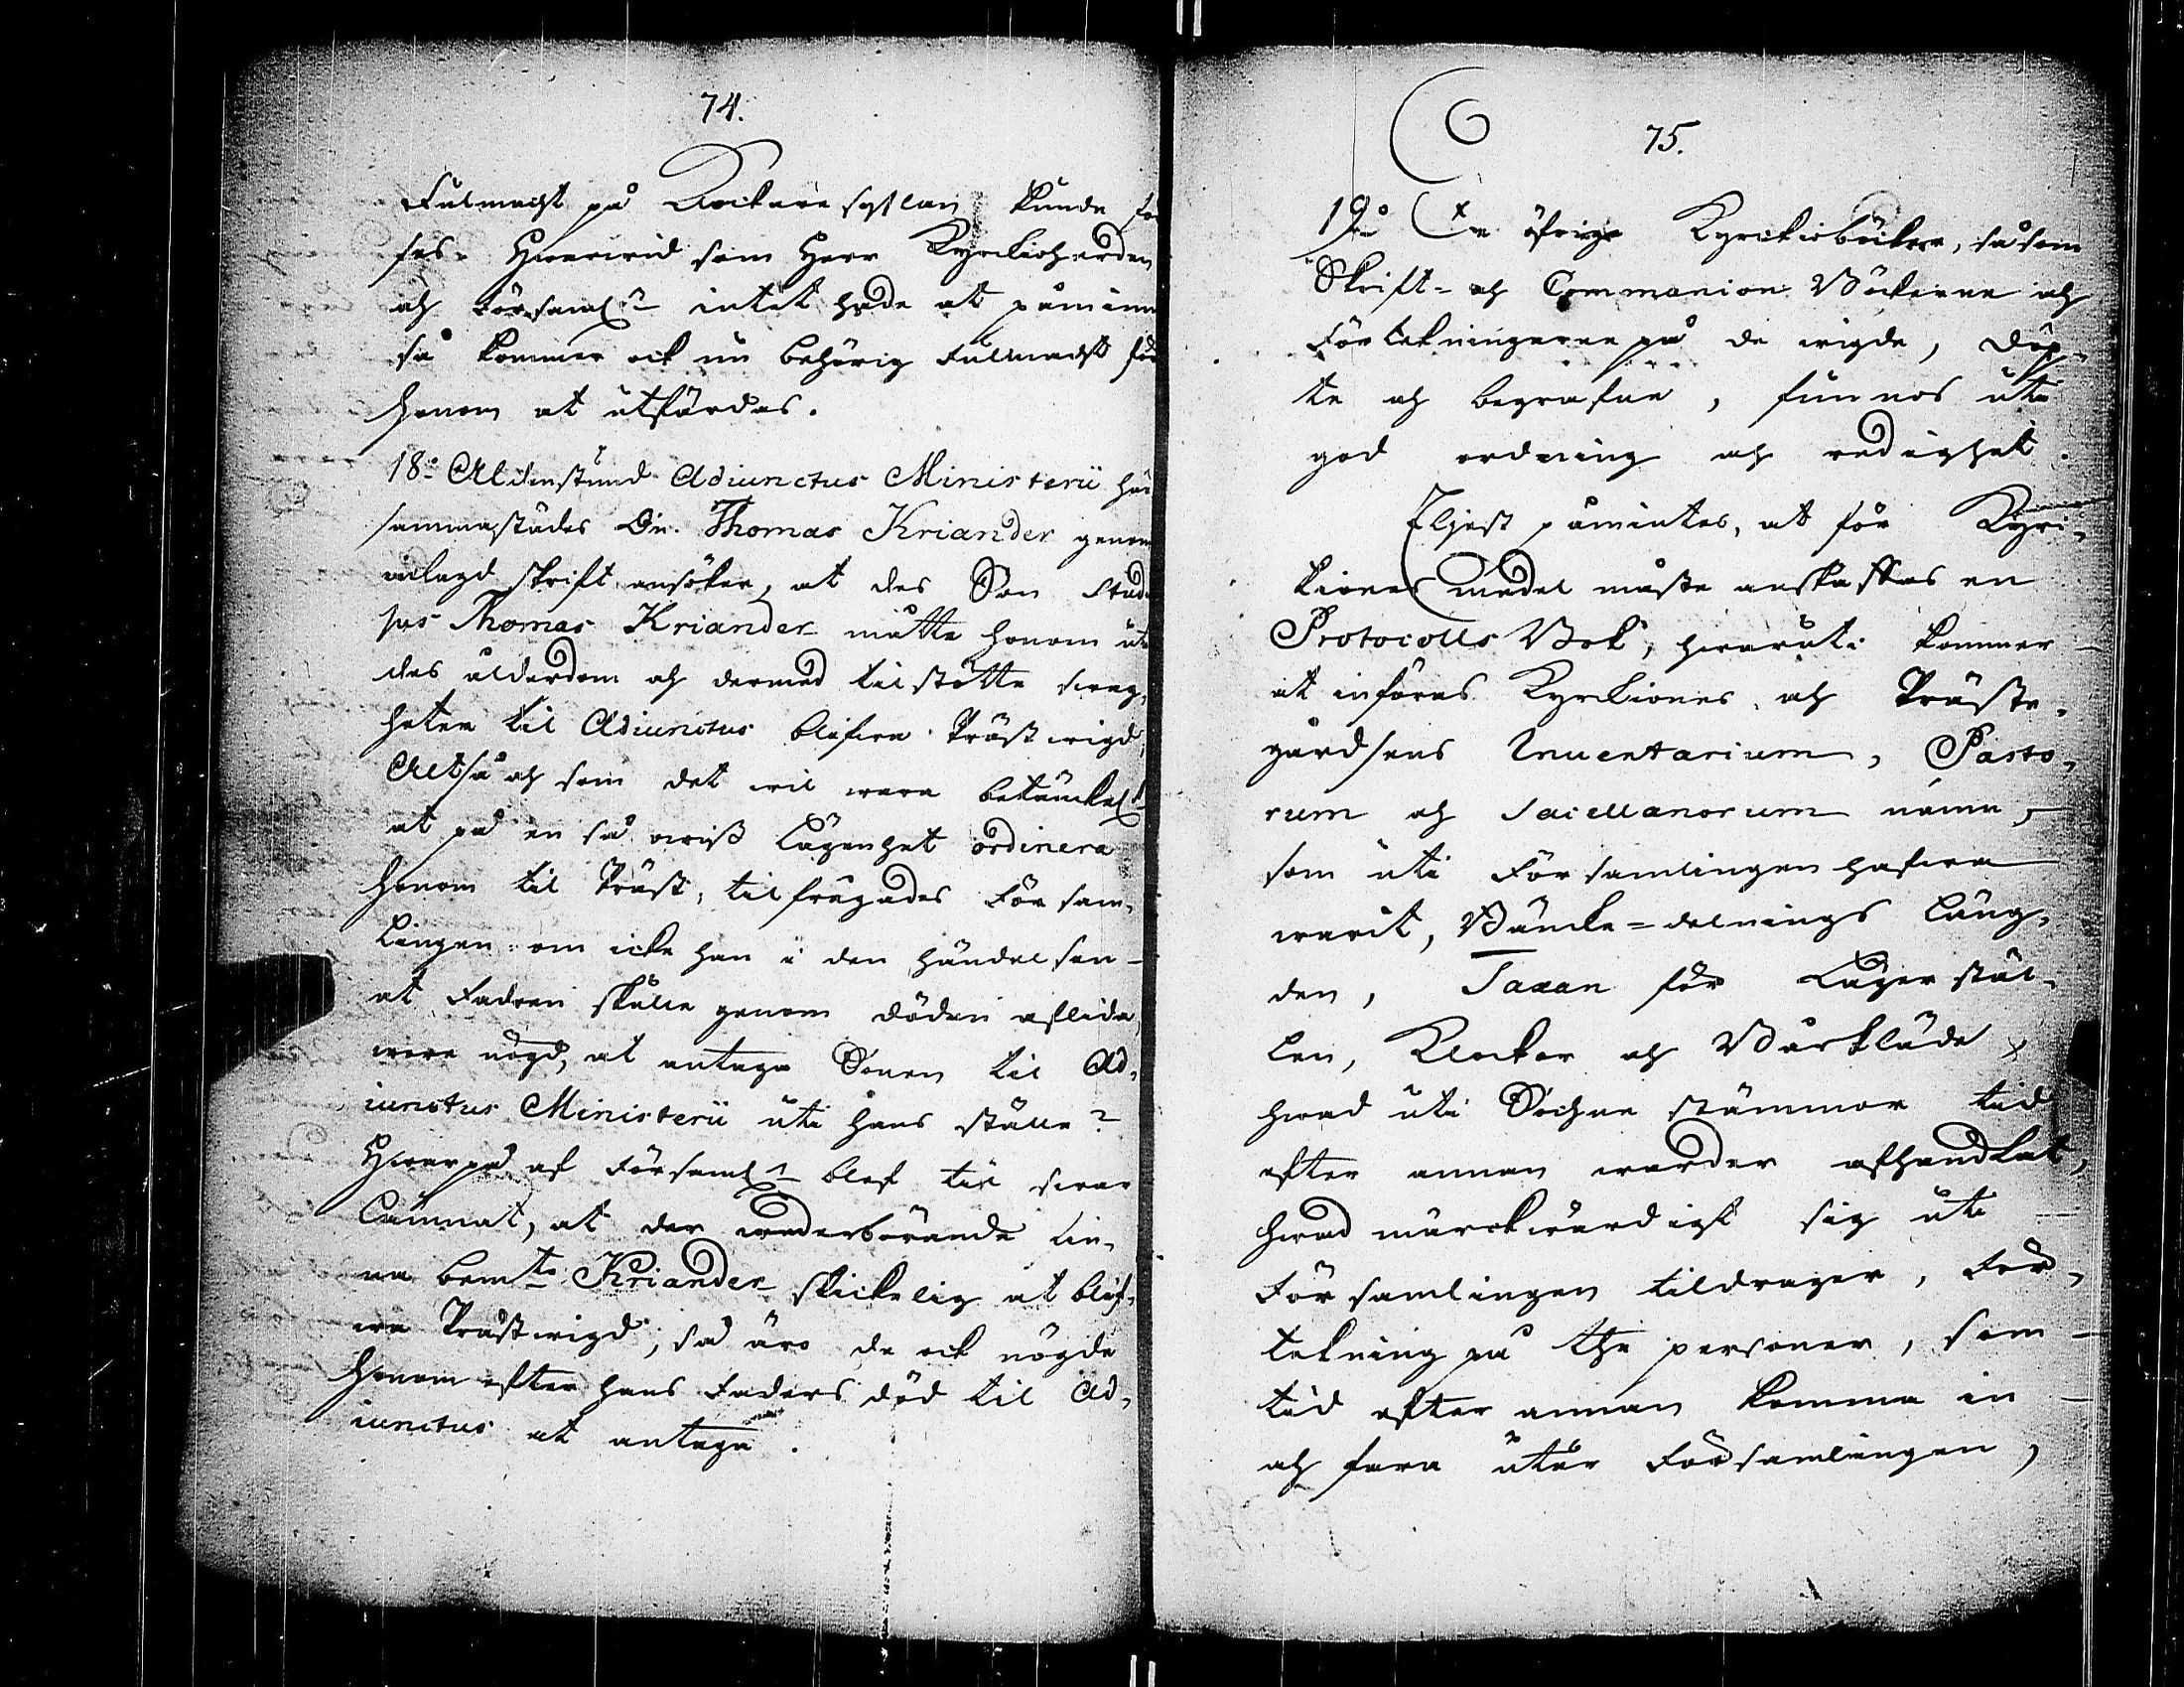 74.
Fulmacht på Klockaresysslan kunde
fås. Hwarwid som Herr Kyrckioherden
och Församl:n intet hade at påminna
så kommer ock nu behörig Fulmacht för
honom at utfärdas.
18:o Aldenstund Adiunctus Ministerii här
sammastädes Dn. Thomas Kriander genom
inlagd skrift ansöker, at des Son Studi
sus Thomas Kriander måtte honom uti
des ålderdom och dermed tilstötte swag,
heten til Adiunctus blifwa Prästwigd,
Altså och som det wil wara betänckel:t
at på en så owiß Lägenhet ordinera
honom til Präst, tilfrågades Försam,
lingen: om icke han i den händelsen
at Fadren skulle genom döden aflida,
wore nögd, at antaga Sonen til Ad,
iunctus Ministerii uti hans ställe?
Hwarpå af Församl:n blef til swar
Lämnat, at der wederbörande fin,
na bem:te Kriander skickelig at blif,
wa Prästwigd, så äro de ock nögde
honom efter hans Faders död til Ad,
iunctus at antaga.
75.
19:o De öfrige Kyrckioböcker, såsom
Skrift- och Communion Böckerne och
Förtekningarne på de wigde, döp,
te och begrafne, funnos uti
god ordning och redighet.
Eljest påmintes, at för Kyrc,
kiones medel måste anskaffas en
Protocolls Bok, hwaruti kommer
at införas Kyrckiones och Präste,
gårdsens Inventarium, Pasto,
rum och Sacellanorum namn,
som uti Församlingen hafwa
warit, Bäncke=delnings läng,
den, Taxan för Lägerstäl,
len, Klockor och Bårkläde
hwad uti Sochne stämmor tid
efter annan warder afhandlat,
hwad märckwärdigt sig uti
Församlingen tildrager, För,
tekning på the personer, som
tid efter annan komma in
och fara utur Församlingen,